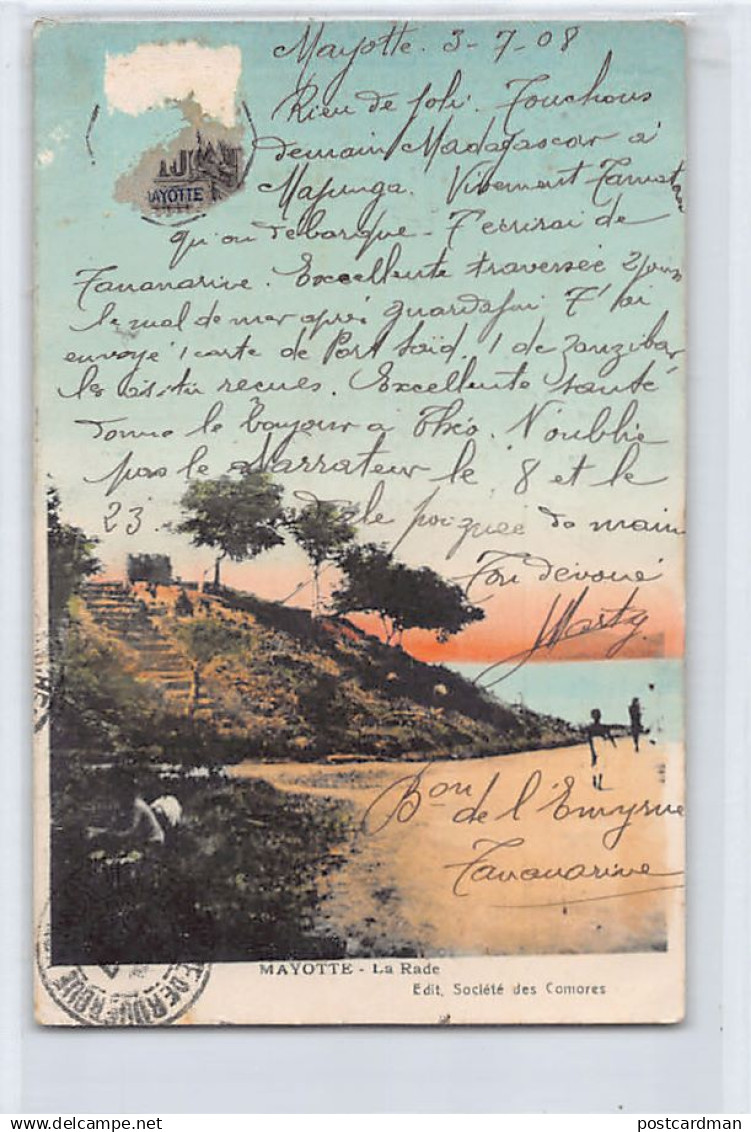 Mayotte. 3-7-08
Rien de joli. Touchons
demain Madagascar à
Majunga. Vivement Tamatave
qu'on débarque. T'écrirai de
Tananarive. Excellente traversée 2 jours
le mal de mer après guardafui T'ai
envoyé 1 carte de Port Saïd. 1 de Zanzibar
les as-tu reçues. Excellente santé
donne le bonjour à Théo. N'oublie
pas le Narrateur le 8 et le
23. de poignée de main
Ton dévoué
Marty
Bon de l'Emyrne
Tananarive
MAYOTTE
MAYOTTE - La Rade
Edit. Société des Comores
postcardman